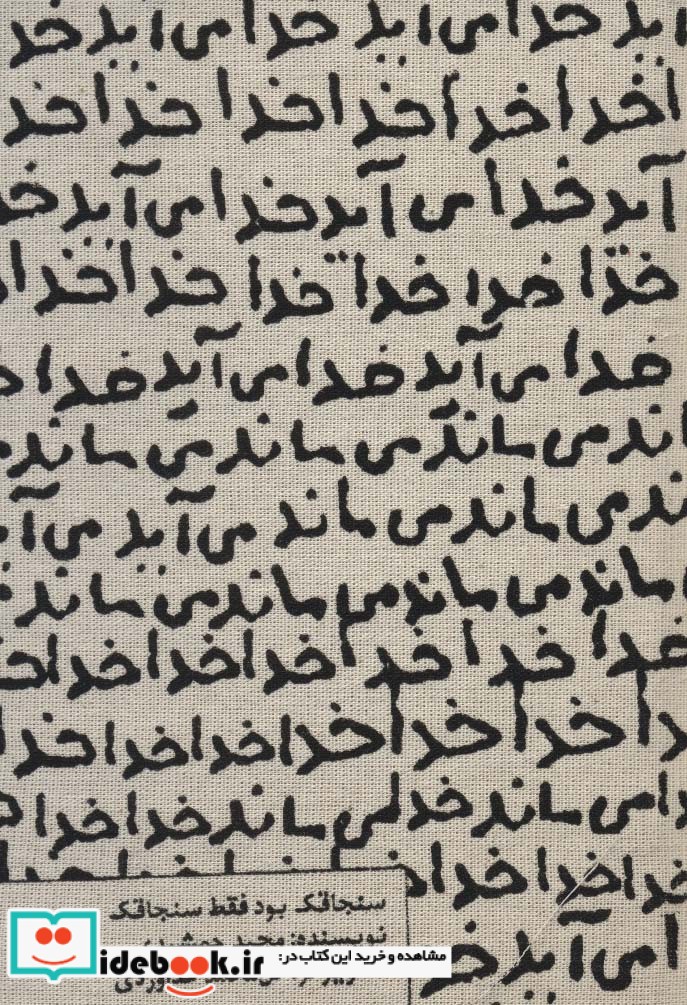 آید خدا می آید خدا می آید خد
اخدا خدا خدا خدا خدا
آید خدا می آید خدا می آید خد
خدا خدا خدا خدا خدا خدا ا
خدا می آید خدا می آید خدا
اند می ماند می ماند می ماند
ند می ماند می ماند می آید می آ
ماند می ماند می ماند می ماند
خدا خدا خدا خدا خدا خدا
ا خدا خدا خدا خدا خدا خدا
امی ماند خدا می ماند خدا خدا
خدا خدا خدا
سنجاقک بود فقط سنجاقک
نویسنده: مجید
ا می آید خد
مشاهده و خرید این کتاب در:
idebook.ir